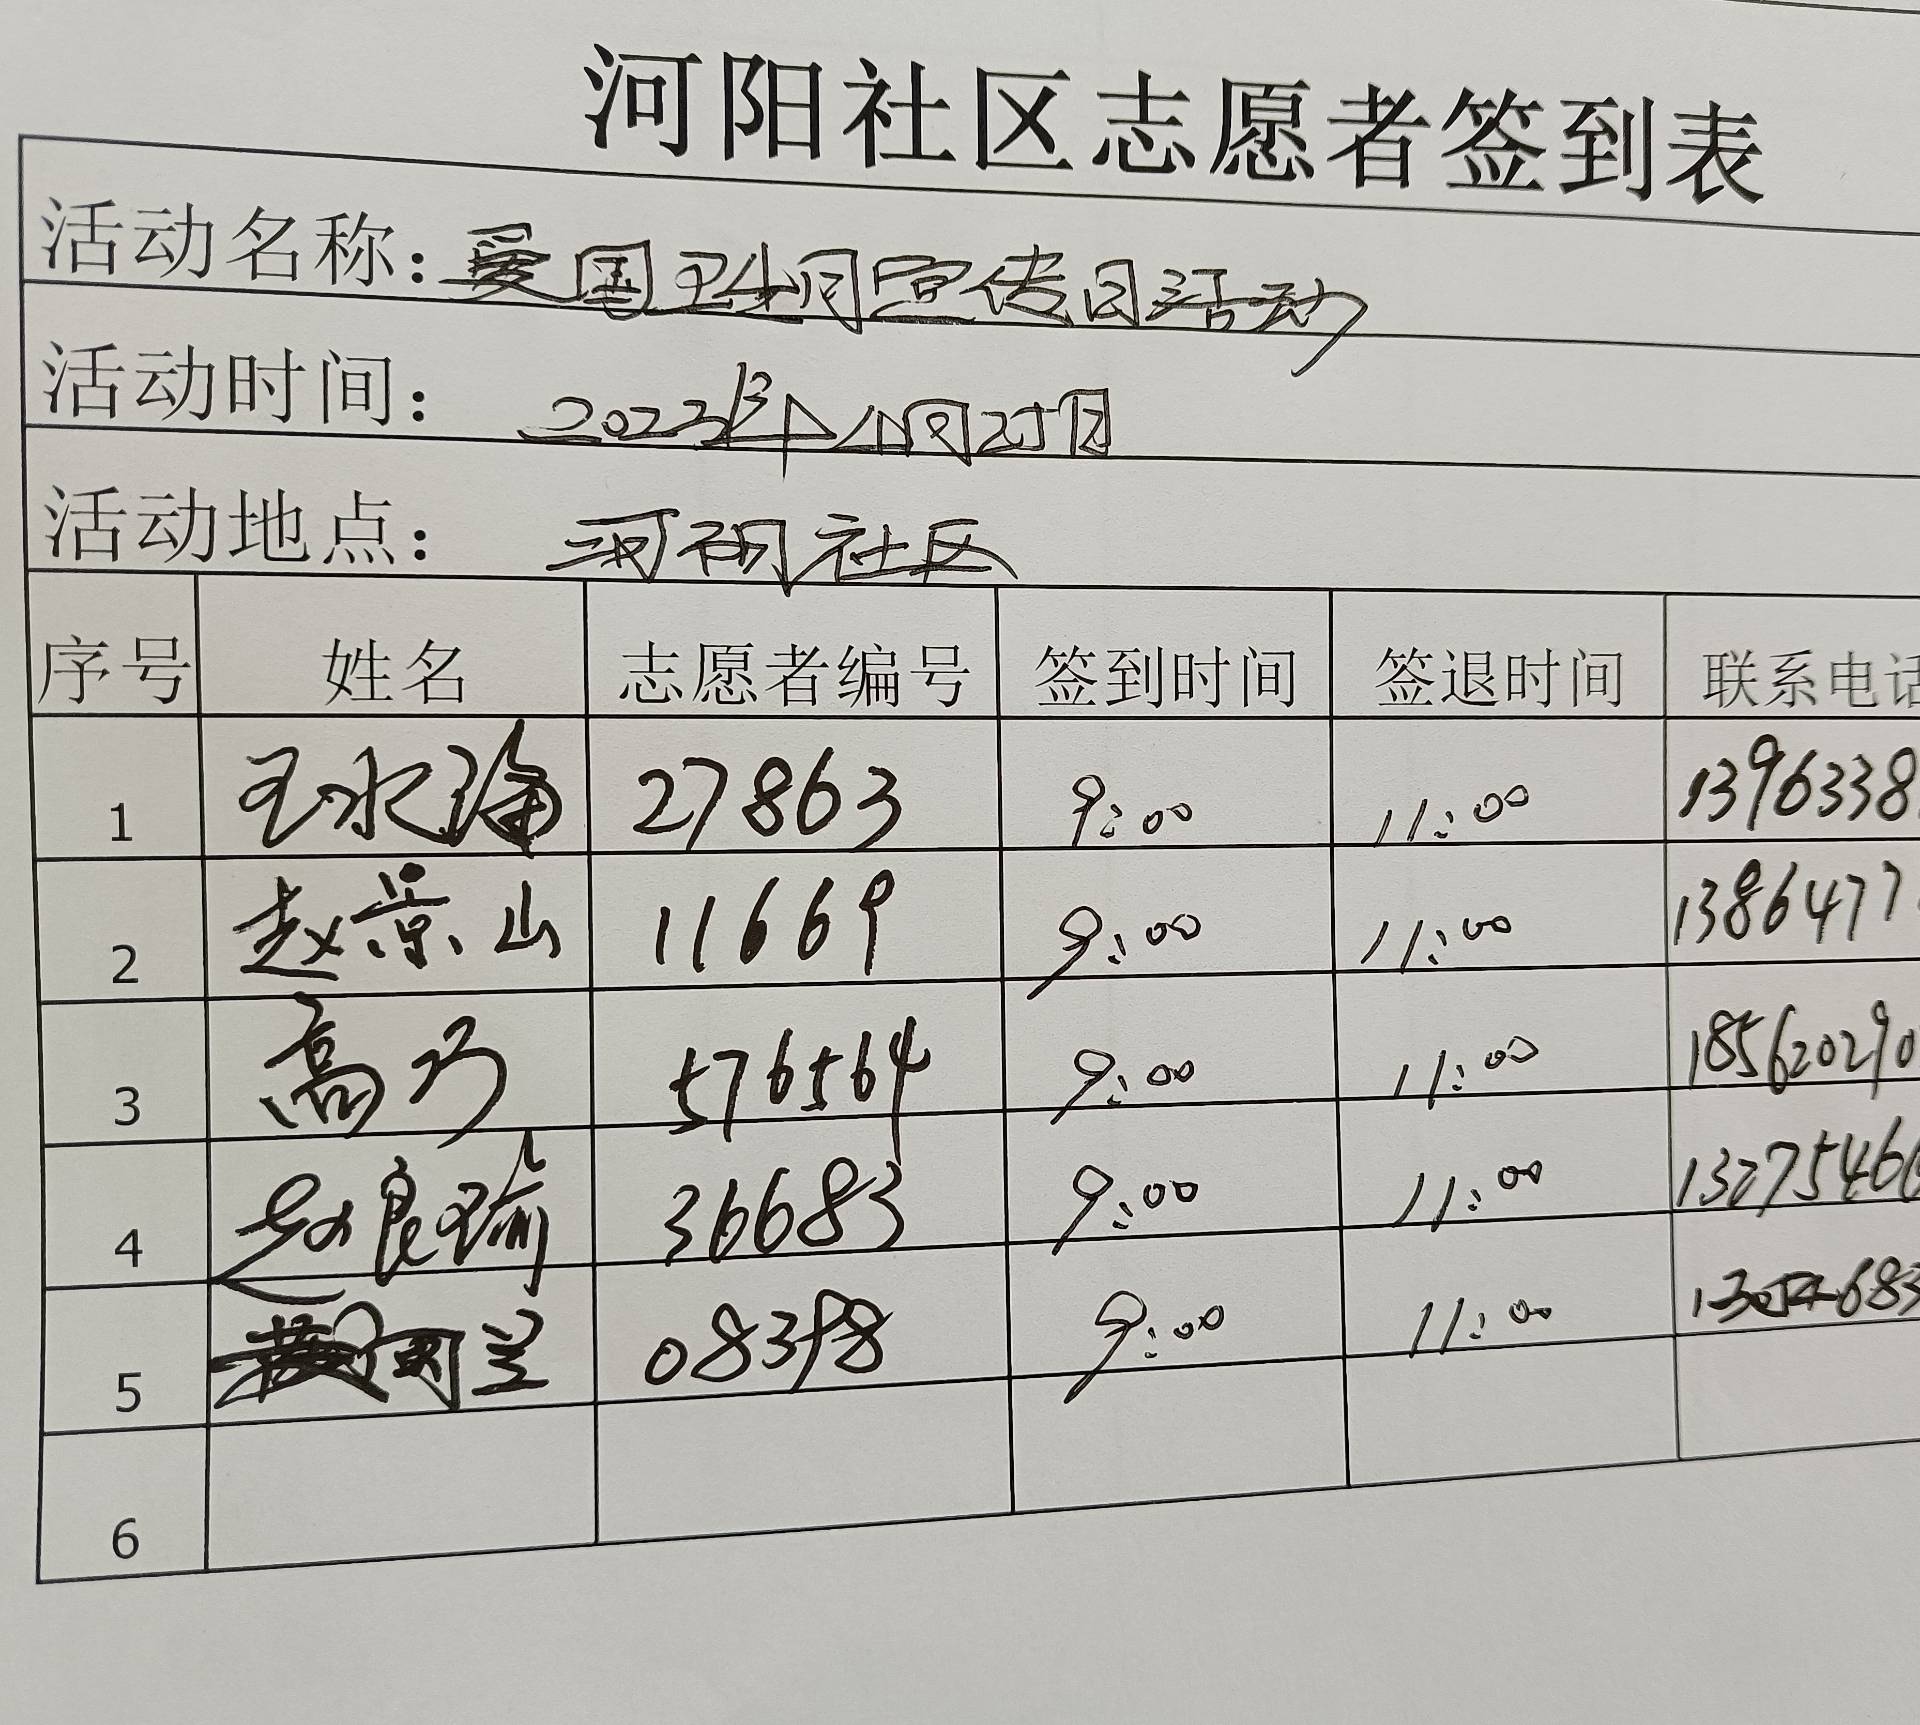 河阳社区志愿者签到表
活动名称：爱国卫生月宣传日活动
活动时间：2023年4月25日
活动地点：河阳社区
序号 姓名 志愿者编号 签到时间 签退时间 联系电话
1 王永海 27863 9:00 11:00 1396338
2 赵景山 11669 9:00 11:00 1386477
3 高巧 576564 9:00 11:00 185620290
4 赵良瑜 36683 9:00 11:00 13275466
5 兰 08398 9:00 11:00 683
6